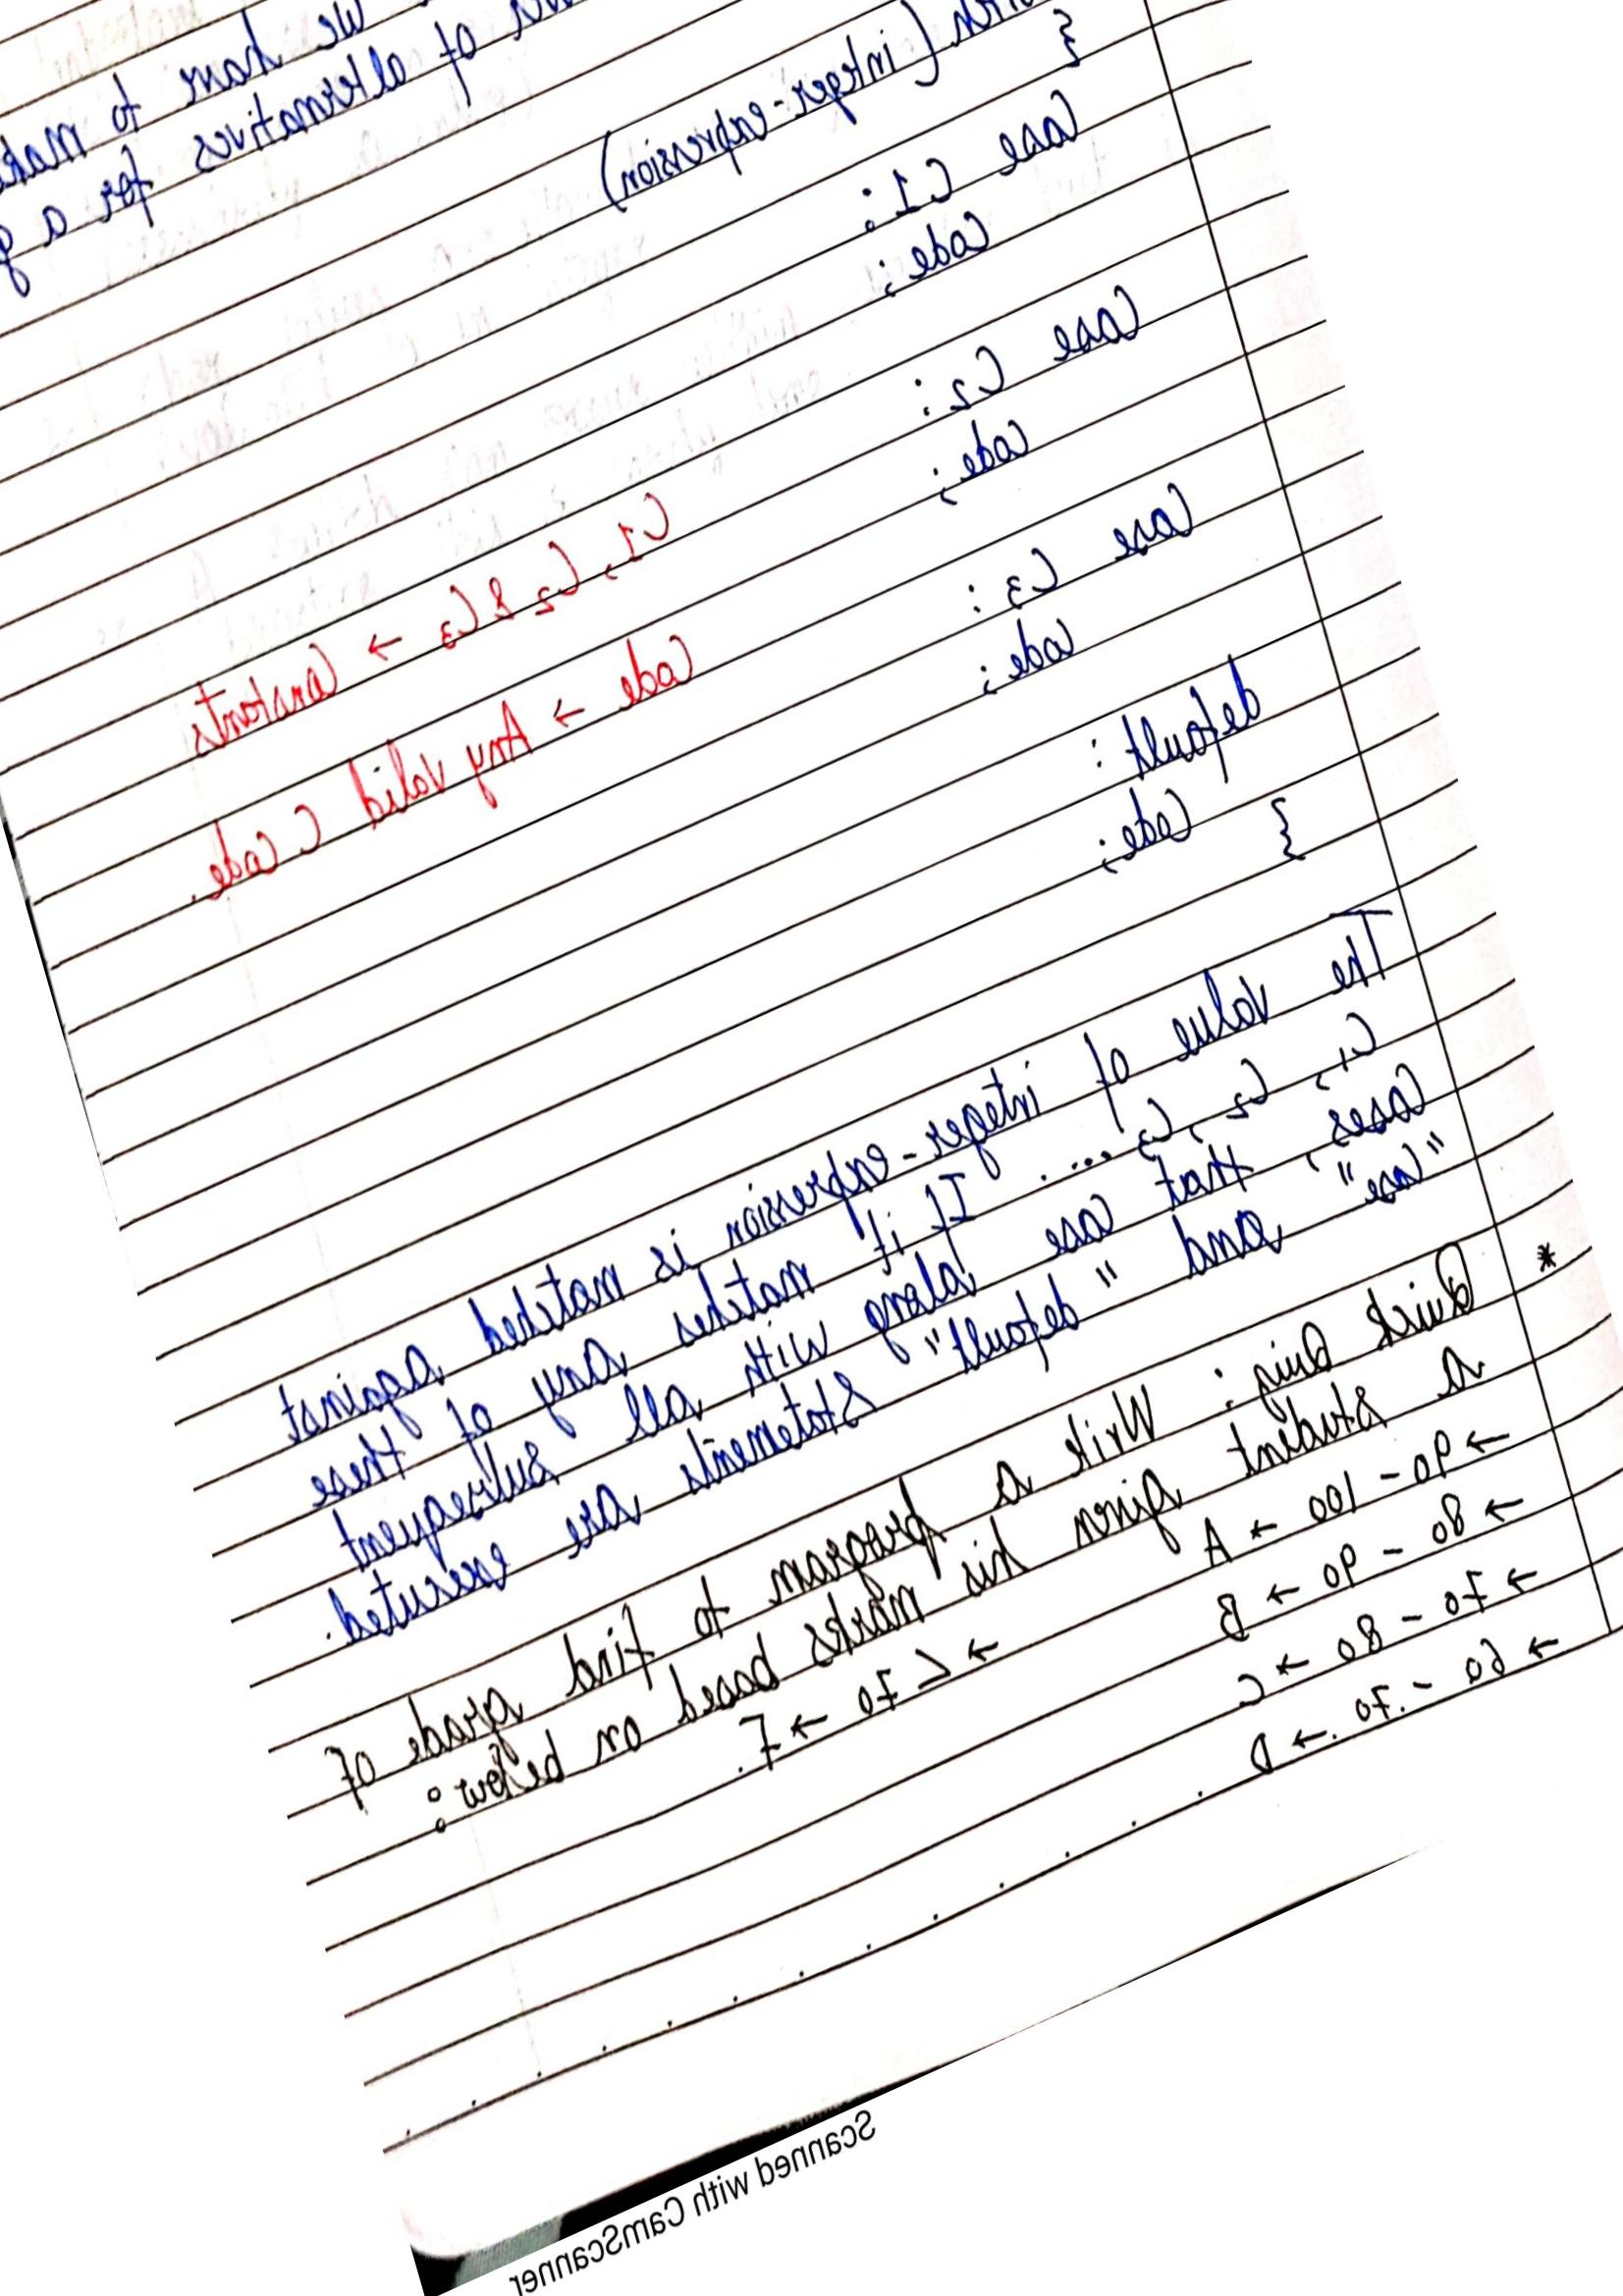 We have to make
of alternatives for a
(integer-expression)
{
Case C1 :
Code ;
Case C2 :
Code ;
Case C3 :
Code ;
C1, C2 & C3 → Constants
Code → Any valid C code.
default :
Code ;
}
The value of integer-expression is matched against
C1, C2, C3 .... If it matches any of these
Cases, that case along with all subsequent
"Case" and "default" Statements are executed.
* Quick Quiz : Write a program to find grade of
a student given his marks based on below :
→ 90 - 100 → A
→ 80 - 90 → B
→ 70 - 80 → C
→ 60 - 70 → D
→ < 70 → F.
Scanned with CamScanner